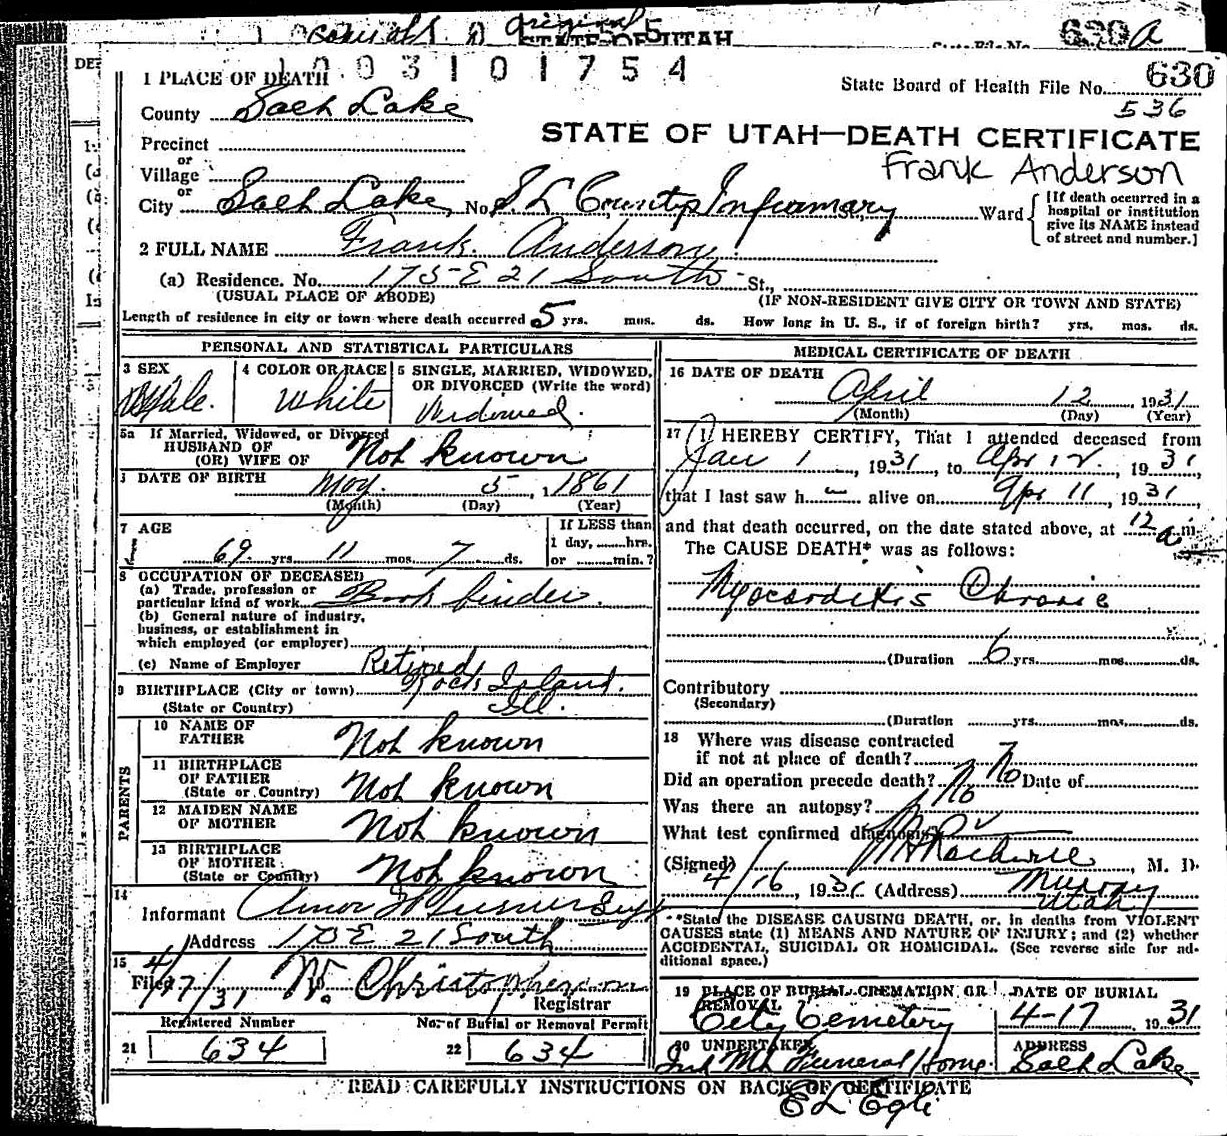 original 5
STATE OF UTAH
State File No. 630a
1003101754
1 PLACE OF DEATH
State Board of Health File No. 630
536
County Salt Lake
STATE OF UTAH—DEATH CERTIFICATE
Precinct
Frank Anderson
or
Village
or
City Salt Lake, No. S L County Infirmary St., Ward
[If death occurred in a hospital or institution give its NAME instead of street and number.]
2 FULL NAME Frank Anderson
(a) Residence. No. 175 E 21 South St.,
(USUAL PLACE OF ABODE) (IF NON-RESIDENT GIVE CITY OR TOWN AND STATE)
Length of residence in city or town where death occurred 5 yrs. mos. ds. How long in U. S., if of foreign birth? yrs. mos. ds.
PERSONAL AND STATISTICAL PARTICULARS
3 SEX
Male.
4 COLOR OR RACE
White
5 SINGLE, MARRIED, WIDOWED, OR DIVORCED (Write the word)
Widowed.
5a If Married, Widowed, or Divorced
HUSBAND OF
(OR) WIFE OF Not known
DATE OF BIRTH May. 5, 1861
(Month) (Day) (Year)
7 AGE
69 yrs 11 mos. 7 ds.
If LESS than 1 day, hrs. or min.?
8 OCCUPATION OF DECEASED
(a) Trade, profession or
particular kind of work Book binder.
(b) General nature of industry,
business, or establishment in
which employed (or employer)
(c) Name of Employer Retired
9 BIRTHPLACE (City or town) Rock Island.
(State or Country) Ill.
PARENTS
10 NAME OF FATHER Not known
11 BIRTHPLACE OF FATHER (State or Country) Not known
12 MAIDEN NAME OF MOTHER Not known
13 BIRTHPLACE OF MOTHER (State or Country) Not known
14
Informant
Address 175 E 21 South
15
Filed 4/17/31 W. Christopherson
Registrar
Registered Number
21 634
No. of Burial or Removal Permit
22 634
MEDICAL CERTIFICATE OF DEATH
16 DATE OF DEATH
April 12 1931
(Month) (Day) (Year)
17 I HEREBY CERTIFY, That I attended deceased from
Jan 1, 1931, to Apr 12, 1931
that I last saw h alive on Apr 11, 1931
and that death occurred, on the date stated above, at 12 a m.
The CAUSE DEATH* was as follows:
Myocarditis Chronic
(Duration 6 yrs. mos. ds.
Contributory
(Secondary)
(Duration yrs. mos. ds.
18 Where was disease contracted
if not at place of death? ?
Did an operation precede death? No Date of
Was there an autopsy? No
What test confirmed diagnosis?
(Signed) , M. D.
4/16, 1931 (Address) Murray Utah
*State the DISEASE CAUSING DEATH, or, in deaths from VIOLENT
CAUSES state (1) MEANS AND NATURE OF INJURY; and (2) whether
ACCIDENTAL, SUICIDAL OR HOMICIDAL. (See reverse side for ad-
ditional space.)
19 PLACE OF BURIAL, CREMATION OR REMOVAL
City Cemetery
DATE OF BURIAL
4-17 1931
20 UNDERTAKER
Funeral Home
ADDRESS
Salt Lake
READ CAREFULLY INSTRUCTIONS ON BACK OF CERTIFICATE
E L Egli